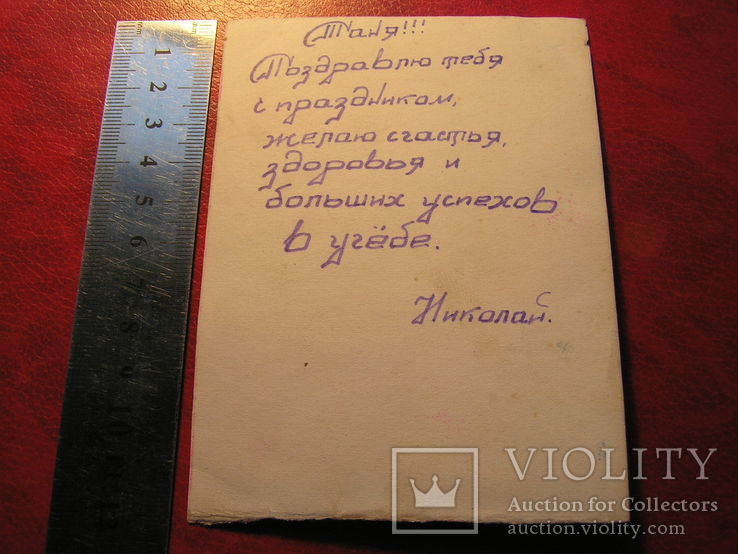 Таня!!!
Поздравлю тебя
с праздником,
желаю счастья,
здоровья и
больших успехов
в учёбе.
Николай.
mm
1
2
3
4
5
6
7
8
9
10
11
12
VIOLITY
Auction for Collectors
auction.violity.com